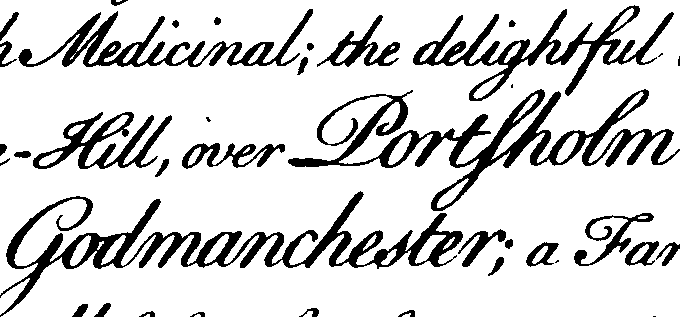 h Medicinal; the delightful
-Hill, over Portſholm
Godmanchester; a Far